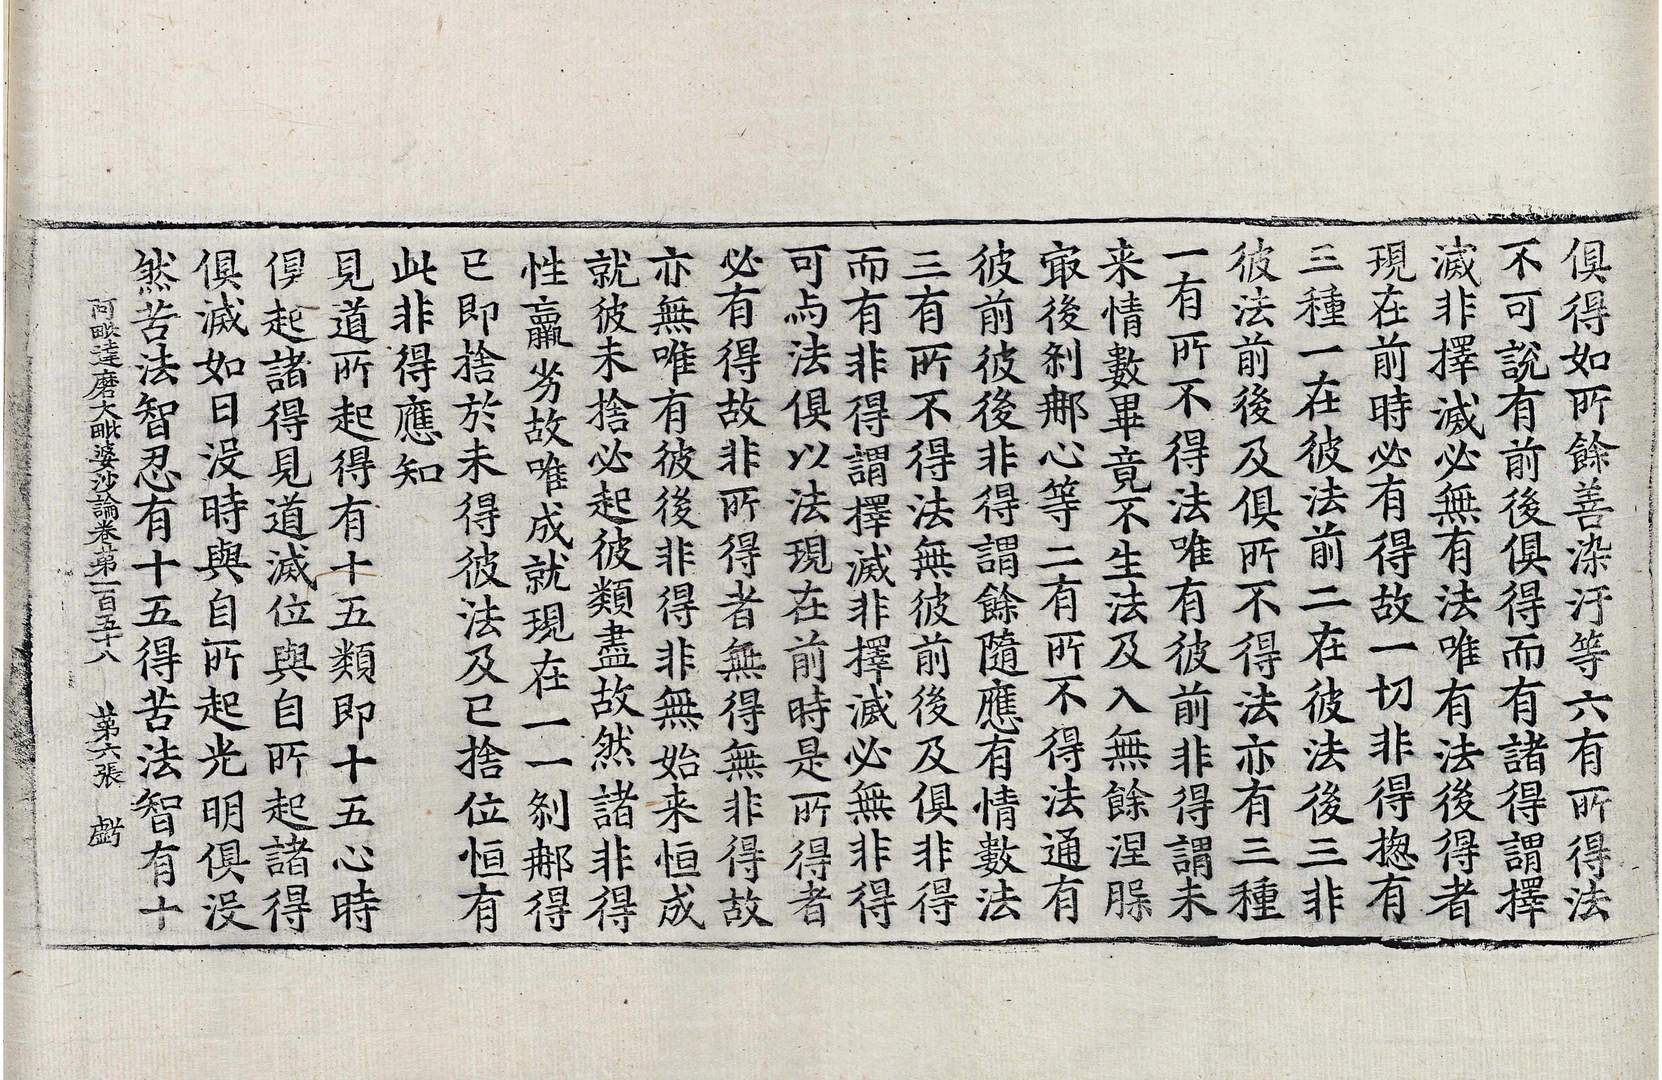 俱得如所餘善染汙等六有所得法
不可說有前後俱得而有諸得謂擇
滅非擇滅必無有法唯有法後得者
現在前時必有得故一切非得揔有
三種一在彼法前二在彼法後三非
彼法前後及俱所不得法亦有三種
一有所不得法唯有彼前非得謂未
来情數畢竟不生法及入無餘涅槃
㝡後剎那心等二有所不得法通有
彼前彼後非得謂餘隨應有情數法
三有所不得法無彼前後及俱非得
而有非得謂擇滅非擇滅必無非得
可与法俱以法現在前時是所得者
必有得故非所得者無得無非得故
亦無唯有彼後非得非無始来恒成
就彼未捨必起彼類盡故然諸非得
性羸劣故唯成就現在一一剎那得
已即捨於未得彼法及已捨位恒有
此非得應知
見道所起得有十五類即十五心時
俱起諸得見道滅位與自所起諸得
俱滅如日没時與自所起光明俱没
然苦法智忍有十五得苦法智有十
阿毗達磨大毗婆沙論卷第一百五十八 第六張 虧